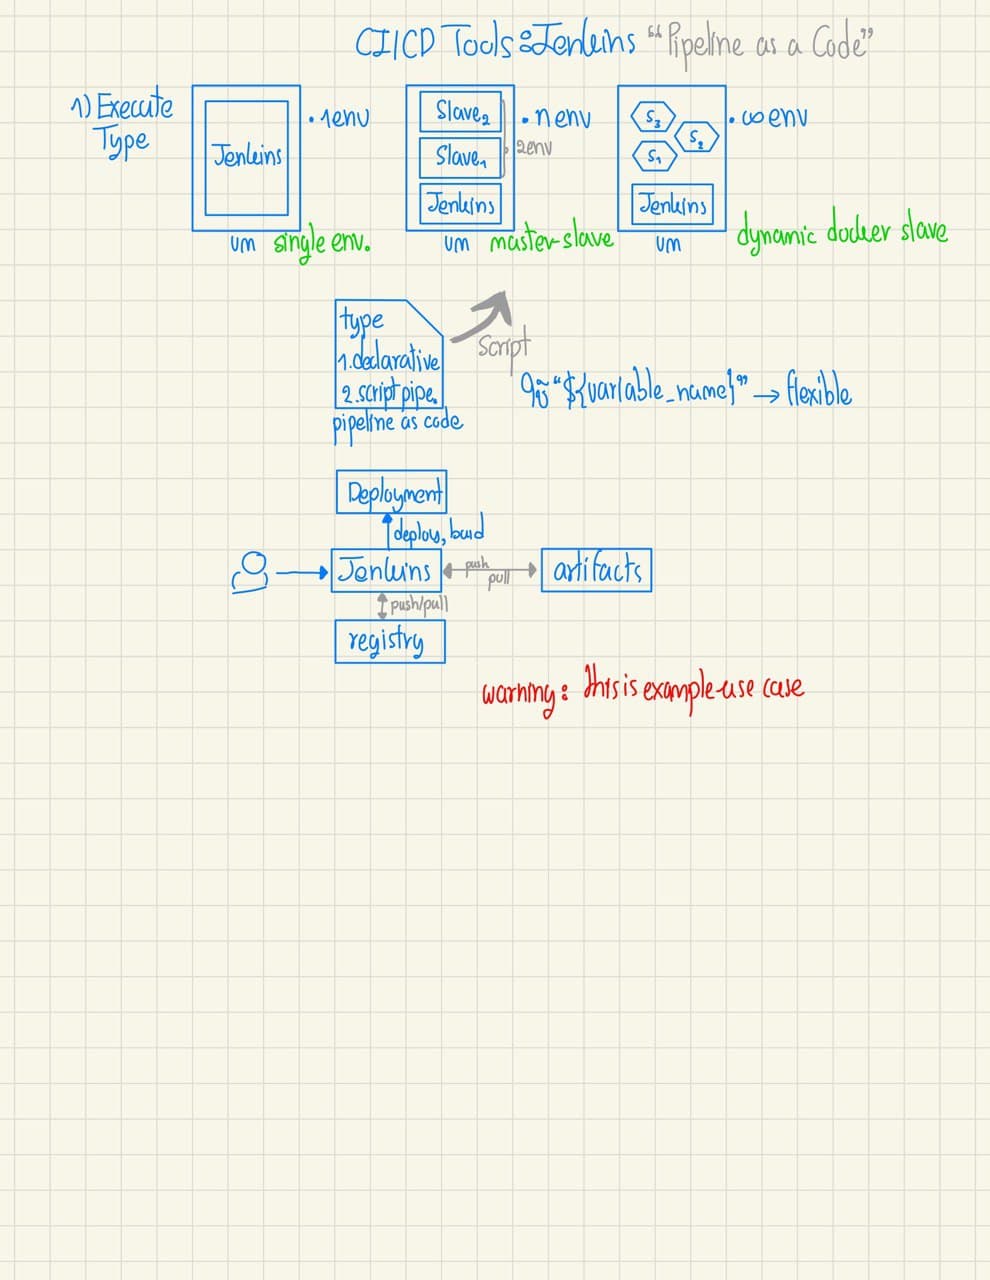 CI/CD Tools: Jenkins "Pipeline as a Code"
1) Execute
Type
Jenkins
• 1env
vm
single env.
Slave2
Slave1
Jenkins
• n env
2env
vm
master-slave
S3
S2
S1
Jenkins
• ∞ env
vm
dynamic docker slave
type
1.declarative
2.script pipe.
pipeline as code
script
"${variable_name}" → flexible
Deployment
deploy,
Jenkins
push
pull
artifacts
push/pull
registry
warning: this is example-use case